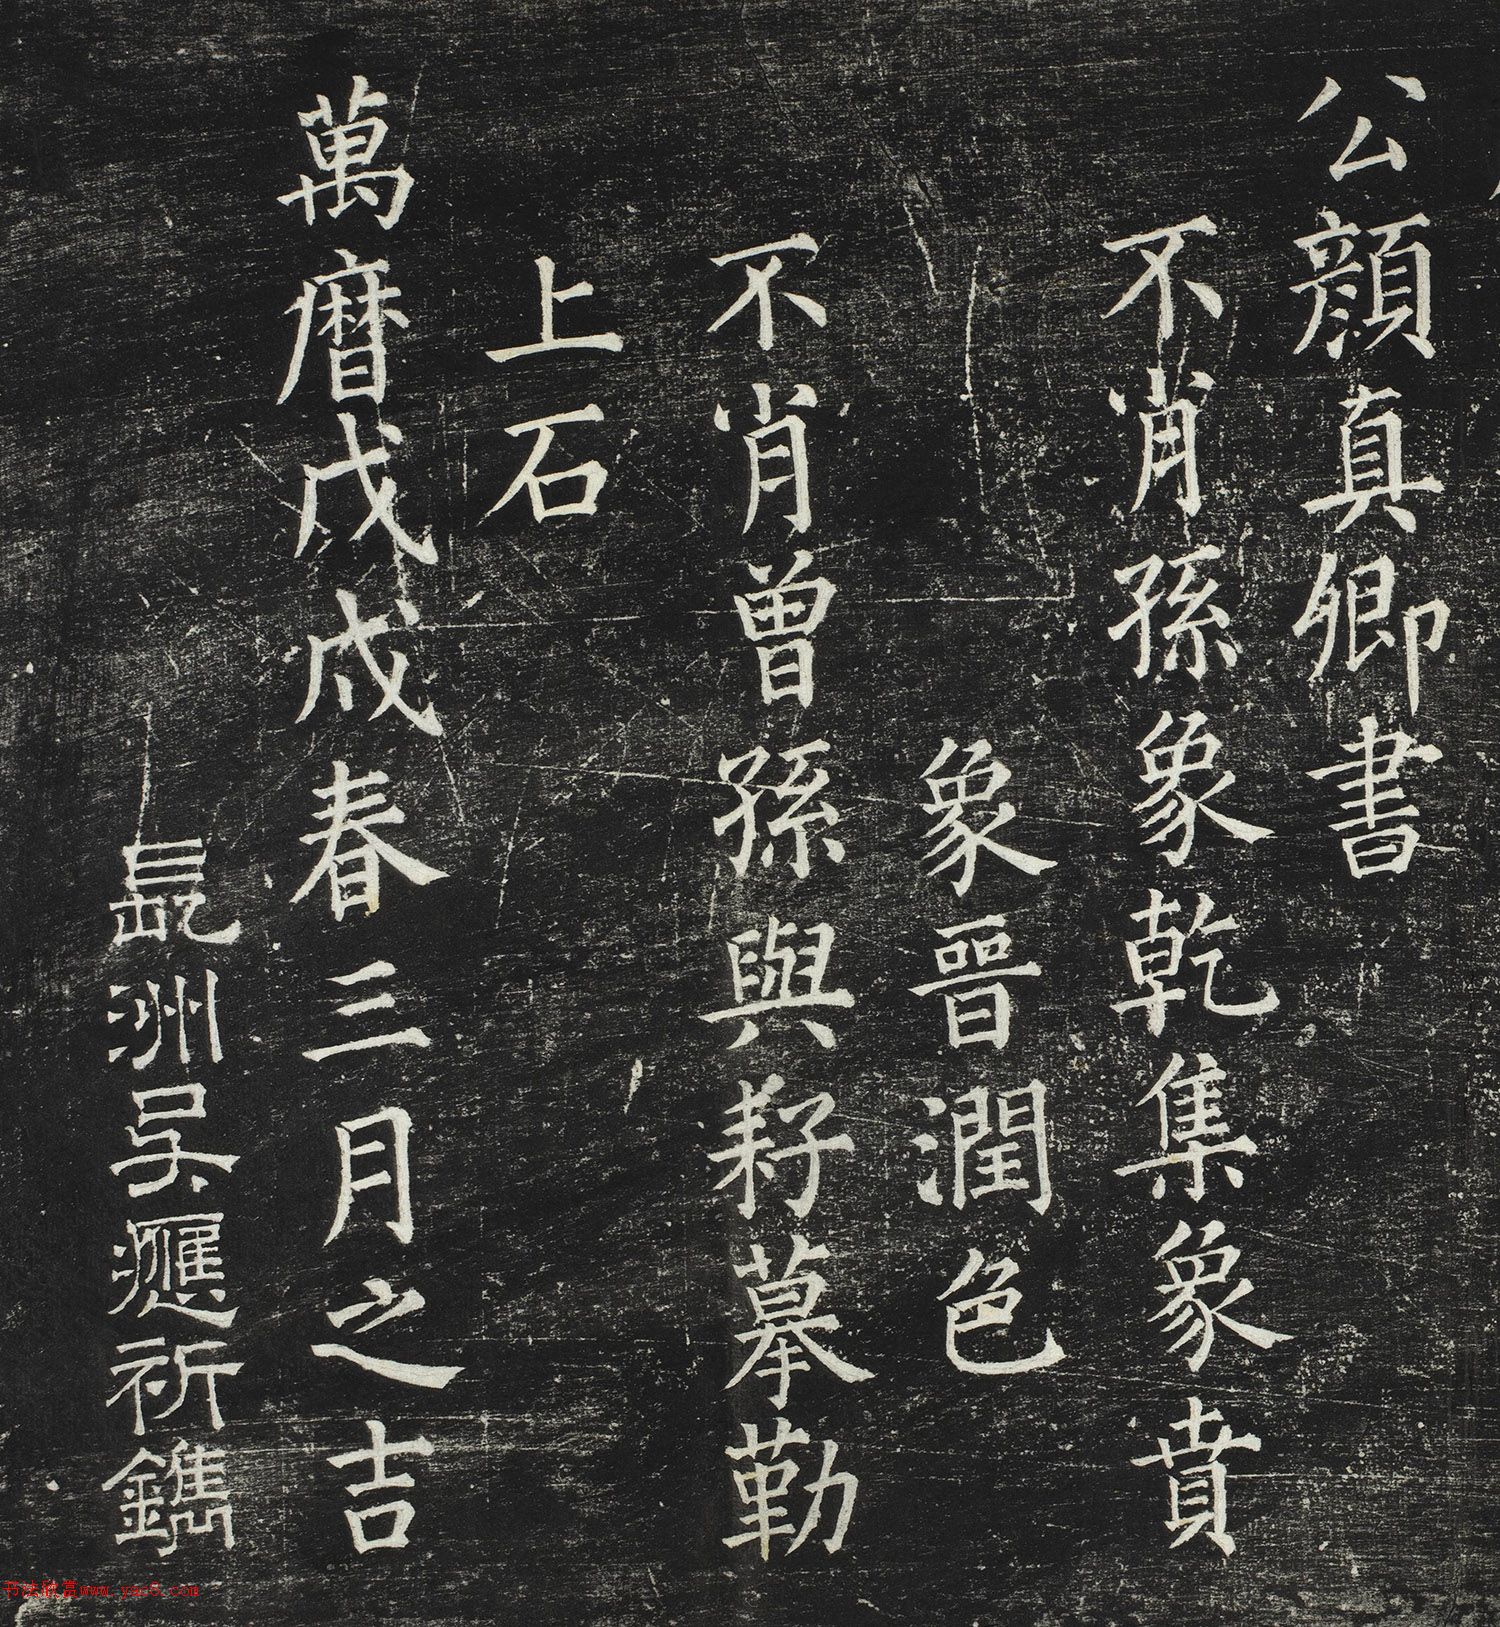 公顏真卿書
不肖孫象乾集象賁
象晉潤色
不肖曾孫與耔摹勒
上石
萬曆戊戌春三月之吉
長洲吳應祈鐫
书法欣赏www.yac8.com